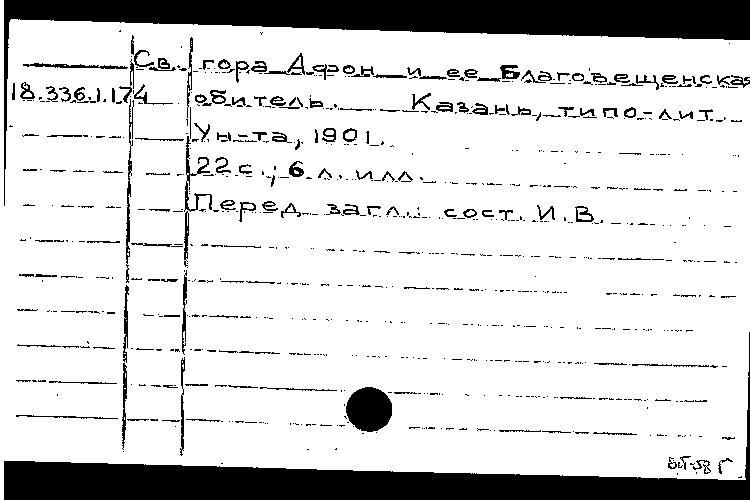 Св. гора Афон и ее Благовещенская
18.336.1.174 обитель. Казань, типо-лит.
Ун-та, 1901.
22 с.; 6 л. илл.
Перед загл.: сост. И.В.